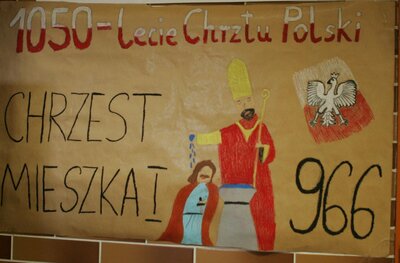 1050-lecie Chrztu Polski
CHRZEST
MIESZKA I
966